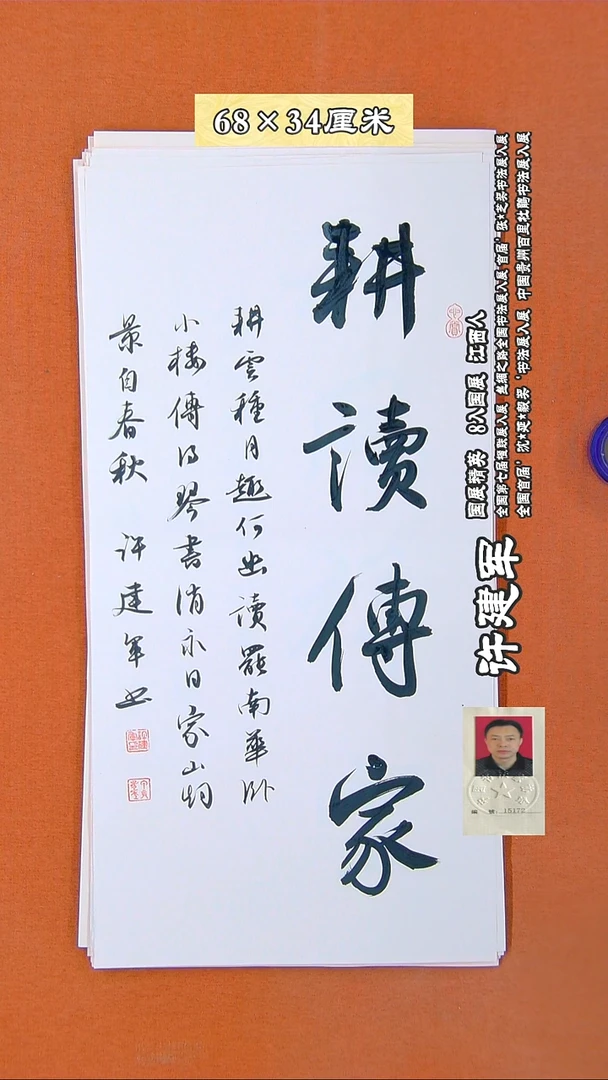 68×34厘米
耕讀傳家
耕雲種月趣何幽讀罷南華卧
小樓傳得琴書消永日家山物
景自春秋 许建军书
许建军
国展精英 8入国展 江西人
全国第七届楹联展入展 丝绸之路全国书法展入展 首届"张★芝奖书法展入展
全国首届"沈★延★毅奖"书法展入展 中国贵州百里杜鹃书法展入展
编 号: 15172